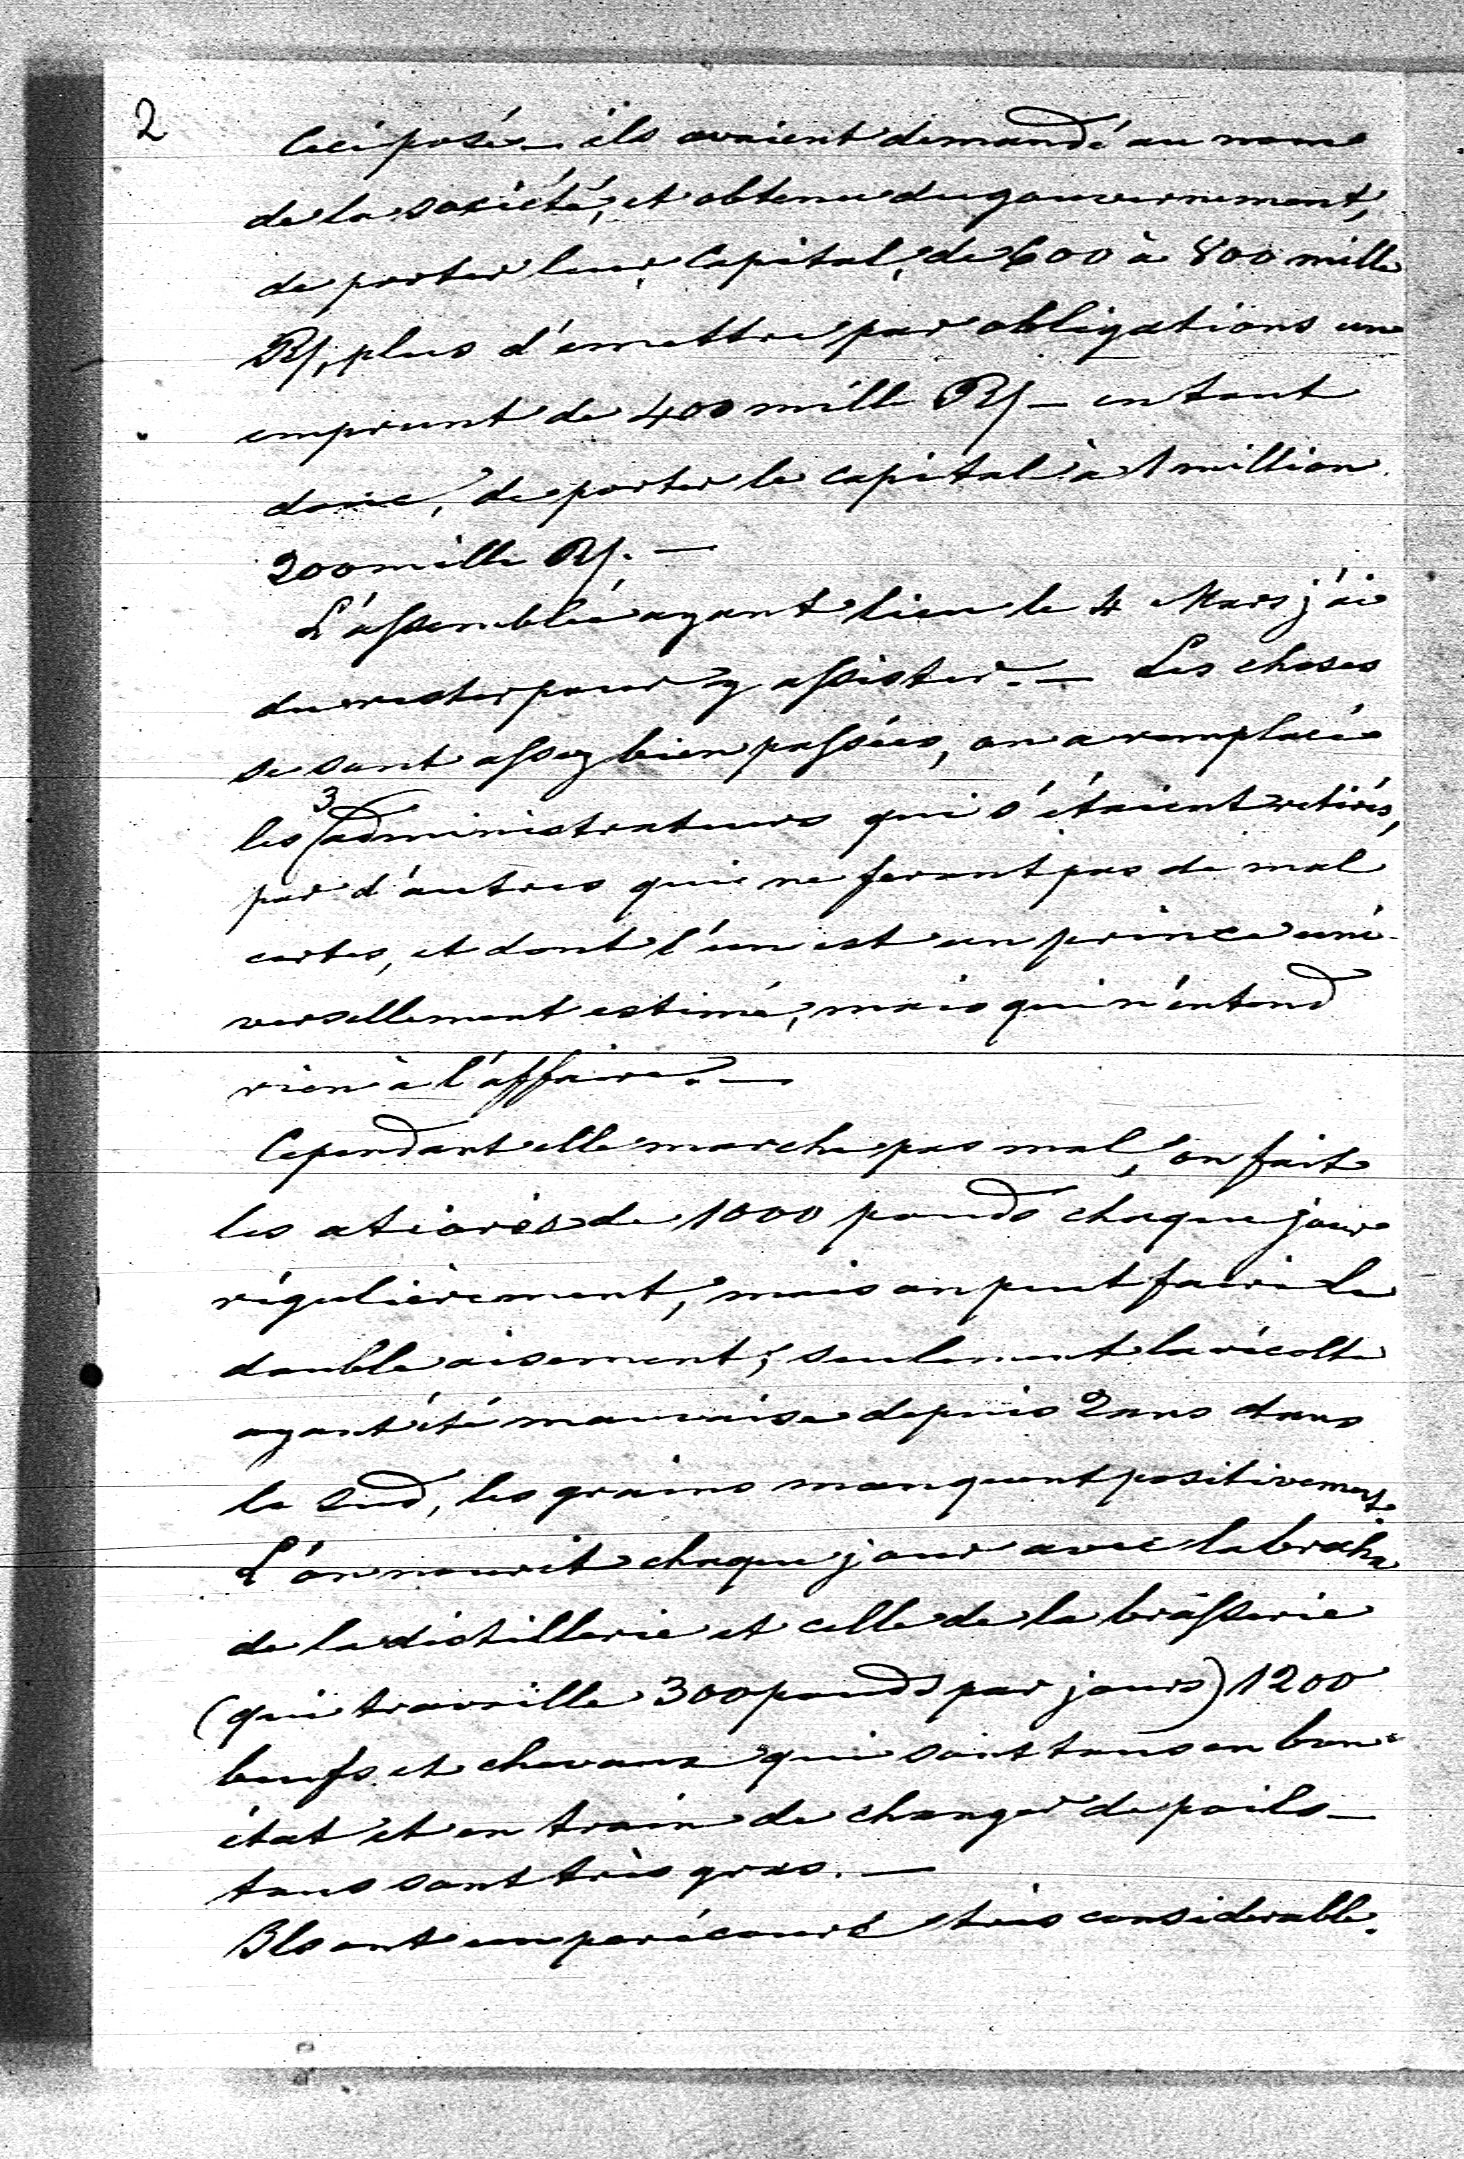 2
Ceci posé – ils avaient demandé au nom
de la société, et obtenu du gouvernement,
de porter leur Capital, de 600 à 800 mille
R/, plus d'émettre par obligations un
emprunt de 400 mille R/ – en tout
donc, de porter le capital à 1 million
200 mille R/. —
L'assemblée ayant lieu le 4 Mars j'ai
du rester pour y assister. — Les choses
se sont assez bien passées, on a remplacé
les 3 administrateurs qui s'étaient retirés,
par d'autres qui ne feront pas de mal
certes, et dont l'un est un prince uni-
versellement estimé, mais qui n'entend
rien à l'affaire. —
Cependant elle marche pas mal, on fait
les atiorés de 1000 pouds chaque jour
régulièrement, mais on peut faire le
double aisement, seulement la récolte
ayant été mauvaise depuis 2 ans dans
le Sud, les grains manquent positivement
L'on nourit chaque jour avec la braha
de la distillerie et celle de la brasserie
(qui travaille 300 pouds par jours) 1200
beufs et chevaux qui sont tous en bon
état et en train de changer de poils –
tous sont très gras. —
Ils ont un très considerable.